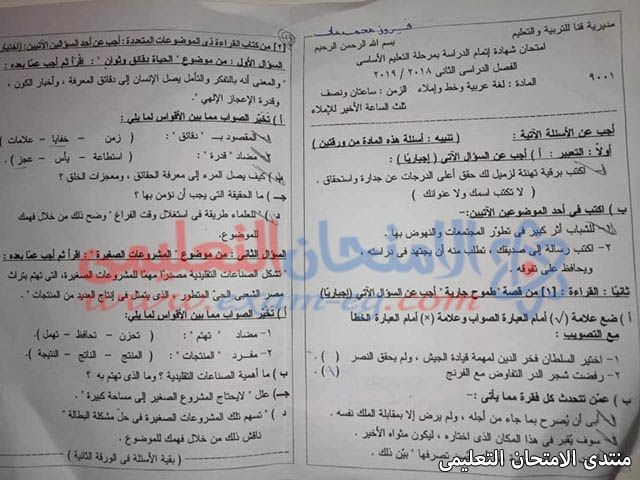 مديرية قنا للتربية والتعليم
بسم الله الرحمن الرحيم
امتحان شهادة إتمام الدراسة بمرحلة التعليم الأساسى
الفصل الدراسى الثانى ٢٠١٨ / ٢٠١٩
٩٠٠١ المادة : لغة عربية وخط وإملاء الزمن : ساعتان ونصف
ثلث الساعة الأخير للإملاء
أجب عن الأسئلة الآتية : ( تنبيه : أسئلة هذه المادة من ورقتين )
أولاً : التعبير : أ ) أجب عن السؤال الآتى ( إجباريًا ) :
اكتب برقية تهنئة لزميل لك حقق أعلى الدرجات عن جدارة واستحقاق .
( لا تكتب اسمك ولا عنوانك )
ب ) اكتب فى أحد الموضوعين الآتيين :-
للشباب أثر كبير فى تطوّر المجتمعات والنهوض بها .
٢- اكتب رسالة إلى صديقك ، تطلب منه أن يجتهد فى دراسته ،
ويحافظ على تفوقه .
ثانيًا : القراءة : [١] من قصة " طموح جارية " أجب عن السؤال الآتى (إجباريًا)
أ ) ضع علامة (√) أمام العبارة الصواب وعلامة (×) أمام العبارة الخطأ
مع التصويب :
١- اختير السلطان فخر الدين لمهمة قيادة الجيش ، ولم يحقق النصر ( )
٢- رفضت شجر الدر التفاوض مع الفرنج ( )
ب ) عمّن تتحدث كل فقرة مما يأتى :-
أبى أن يُصرح بما جاء من أجله ، ولم يرض إلا بمقابلة الملك نفسه .
سوف يُقبر فى هذا المكان الذى اختاره ، ليكون مثواه الأخير .
تصرفها " بيّن ذلك .
[٢] من كتاب القراءة ذى الموضوعات المتعددة : أجب عن أحد السؤالين الآتيين :
السؤال الأول : من موضوع " الحياة دقائق وثوان " اقرأ ثم أجب عمّا بعده :
" والمعنى أنه بالتفكر والتأمل يصل الإنسان إلى دقائق ، وأخبار الكون ،
وقدرة الإعجاز الإلهي " .
أ ) تخيّر الصواب مما بين الأقواس لما يلى :
المقصود بـ " دقائق " : ( زمن – خفايا – علامات )
مضاد " قدرة " : ( استطاعة – يأس – عجز )
ب ) كيف يصل المرء إلى معرفة الحقائق ، ومعجزات الخلق ؟
جـ ) ما الحقيقة التى يجب أن نؤمن بها ؟
د ) " للعلماء طريقة فى استغلال وقت الفراغ " وضح ذلك من خلال فهمك
للموضوع .
السؤال الثانى : من موضوع " المشروعات الصغيرة " اقرأ ثم أجب عمّا بعده :
" تشكل الصناعات التقليدية مصدرًا مهمًا للمشروعات الصغيرة ، التى تهتم بتراث
مصر الشعبى الحىّ المتطور ، والذى يتمثل فى إنتاج العديد من المنتجات " .
أ ) تخيّر الصواب مما بين الأقواس لما يلى :
١- مضاد " تهتم " : ( تحزن – تحافظ – تهمل )
٢- مفرد " المنتجات " : ( المنتج – الناتج – النتيجة )
ب ) ما أهمية الصناعات التقليدية ؟ وما الذى تهتم به ؟
جـ ) علل " لايحتاج المشروع الصغير إلى مساحة كبيرة " .
د ) " تسهم تلك المشروعات الصغيرة فى حلّ مشكلة البطالة "
ناقش ذلك من خلال فهمك للموضوع .
( بقية الأسئلة فى الورقة الثانية )
الامتحان التعليمى
www.exam-eg.com
منتدى الامتحان التعليمى